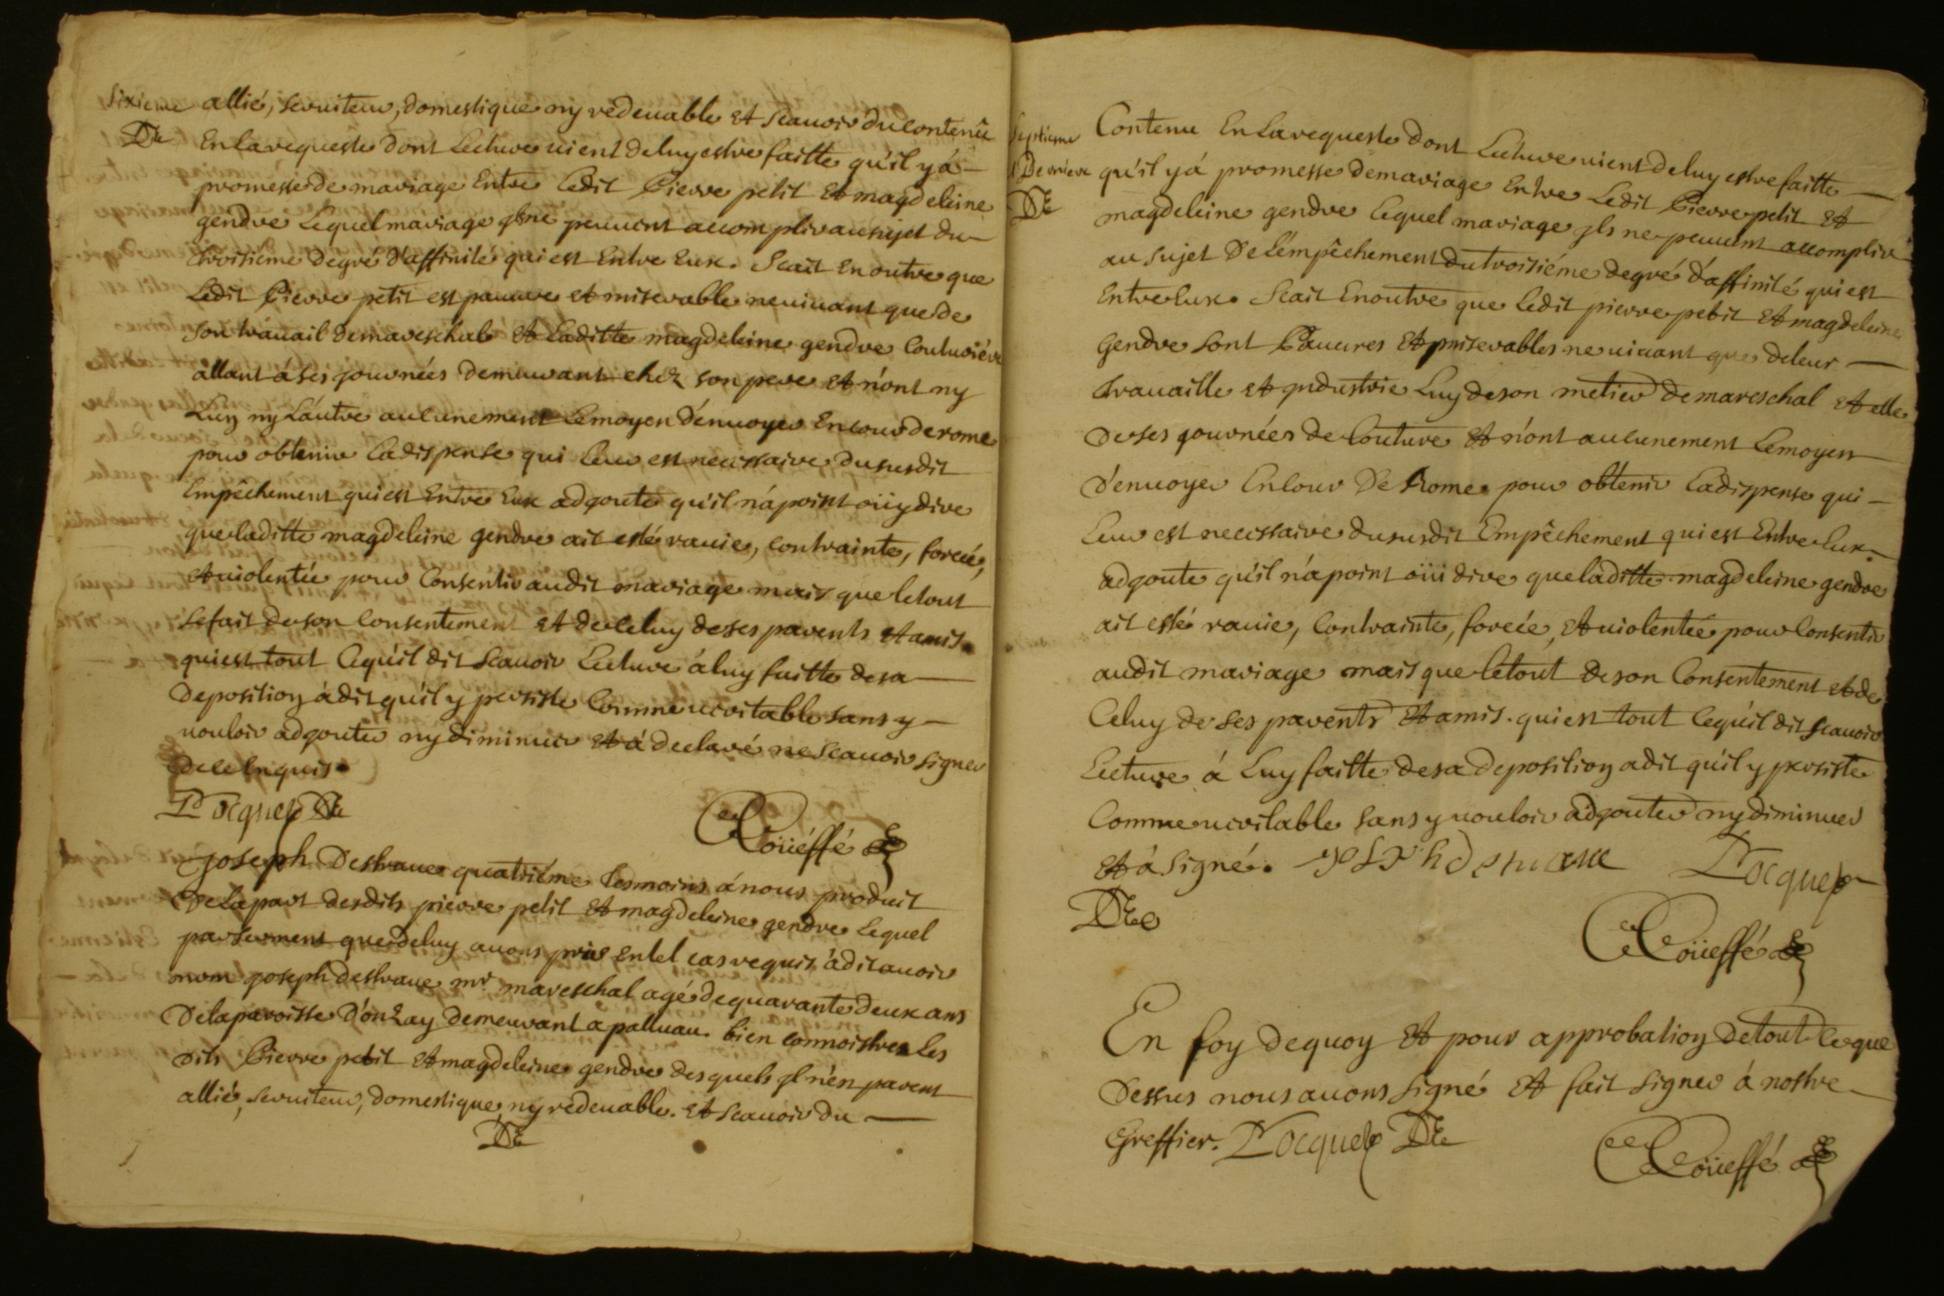 Sixieme
De
allié, seruiteur, domestique ny redeuable et scauoir du contenu
En la requeste dont Lecture uient de luy estre faitte qu'il y á
promesse de mariage Entre Ledit Pierre petit Et magdeleine
gendre Lequel mariage jls ne peuuent accomplir au sujet du
troisieme degré d'affinité qui est Entre Eux. Scait En outre que
Ledit Pierre petit est pauure et miserable ne uiuant que de
son trauail de mareschal et Laditte magdeleine gendre Couturiére
allant á ses journées demeurant chez son pere et n'ont ny
Luy ny L'autre aucunement Le moyen d'enuoyer En cour de rome
pour obtenir La dispense qui Leur est necessaire du susdit
Empêchement qui est Entre Eux adjoute qu'il n'a point oüy dire
que laditte magdeleine gendre ait esté rauie, contrainte, forcée,
et uiolentée pour Consentir audit mariage mais que le tout
se fait de son Consentement et de Celuy de ses parents et amis
qui est tout Ce qu'il dit scauoir Lecture á luy faitte de sa
deposition á dit qu'il y persiste Comme ueritable sans y
uouloir adjouter ny diminuer et á declaré ne scauoir signer
de ce Enquis.
Rouéffé
Joseph Destraue quatriéme tesmoins á nous produit
de la part desdits pierre petit et magdeleine gendre Lequel
par serment que de luy auons pris en tel cas requis á dit auoir
nom joseph destraue mr mareschal agé de quarante deux ans
de la paroisse d'onzay demeurant a palluau. bien connoistre Les
dits Pierre petit et magdeleine gendre desquels jl n'en parent
allié, seruiteur, domestique ny redeuable. et scauoir du
De
septieme
& Derniere
De
Contenu En la requeste dont Lecture uient de luy estre faitte
qu'il y á promesse de mariage Entre Ledit Pierre petit et
magdeleine gendre Lequel mariage jls ne peuuent accomplir
au sujet de L'empêchement du troisiéme degré d'affinité qui est
Entre Eux. Scait En outre que Ledit pierre petit et magdeleine
Gendre sont Pauures et miserables ne uiuant que de leur
trauaille et jndustrie Luy de son metier de mareschal et elle
de ses journées de Couture et n'ont aucunement Le moyen
d'enuoyer En Cour De Rome pour obtenir La dispense qui
Leur est necessaire du susdit Empêchement qui est Entre Eux.
adjoute qu'il n'a point oüi dire que laditte magdeleine gendre
ait esté rauie, Contrainte, forcée, et uiolentée pour Consentir
audit mariage mais que le tout de son Consentement et de
Celuy de ses parents et amis. qui est tout Ce qu'il dit scauoir
Lecture á Luy faitte de sa deposition a dit qu'il y persiste
Comme ueritable sans y uouloir adjouter ny diminuer
et á signé.
De
Roüeffé
En foy de quoy et pour approbation de tout Ce que
dessus nous auons signé et fait signer á nostre
Greffier.
De
Roüeffé